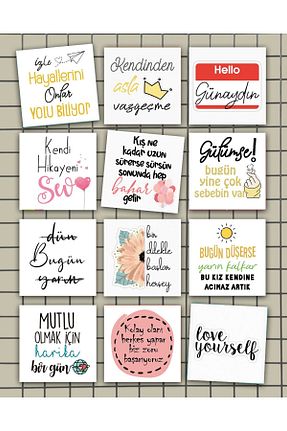 izle
Hayallerini
Onlar
YOLU BİLİYOR
Kendinden
asla
vazgeçme
Hello
Günaydın
Kendi
Hikayeni
Sev
Kış ne
kadar uzun
sürerse sürsün
sonunda hep
bahar
gelir
Gülümse!
bugün
yine çok
sebebin var
dün
Bugün
yarın
bir
dilekle
başlar
herşey
BUGÜN DÜŞERSE
yarın kalkar
BU KIZ KENDİNE
ACIMAZ ARTIK
MUTLU
OLMAK İÇİN
harika
bir gün
Kolay olanı
herkes yapar
biz zoru
başarıyoruz
love
yourself